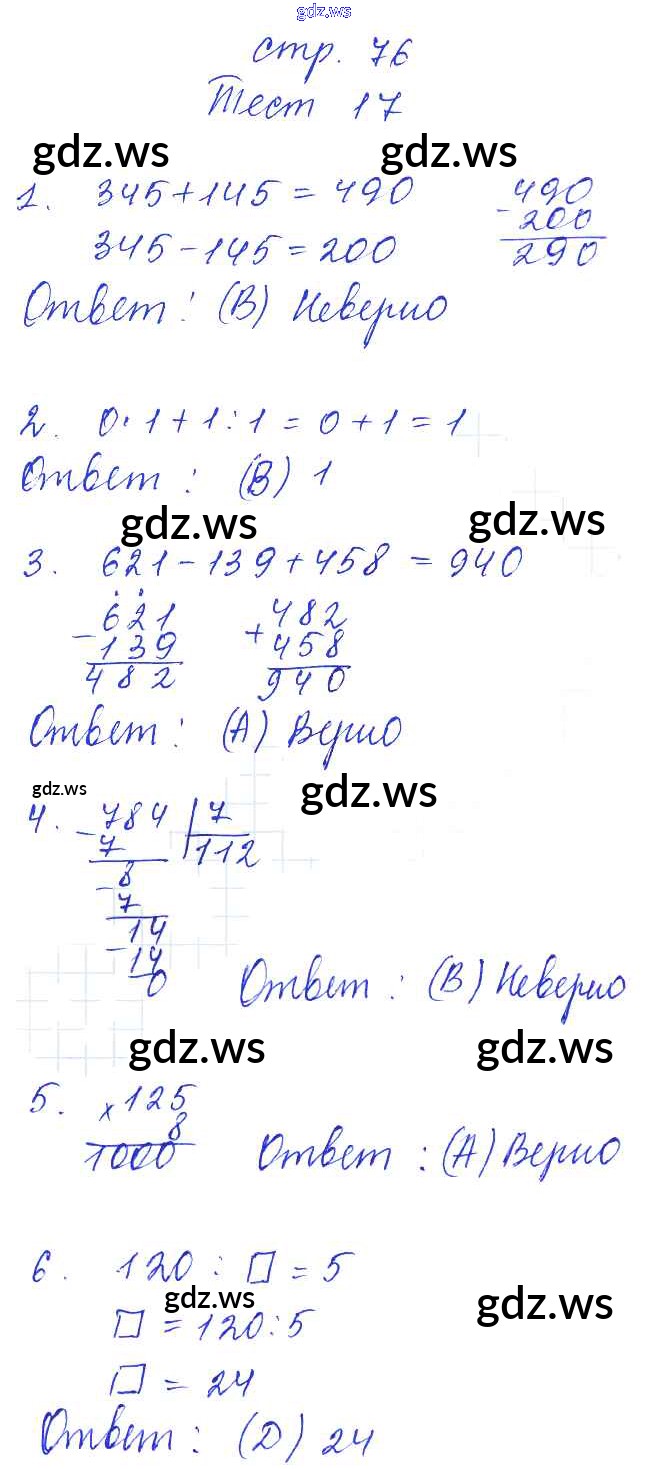 gdz.ws
стр. 76
Тест 17
gdz.ws gdz.ws
1. 345+145=490 490
- 200
345-145=200 290
Ответ: (В) Неверно
2. 0·1+1:1=0+1=1
Ответ: (В) 1
gdz.ws gdz.ws
3. 621-139+458=940
- 621 + 482
139 458
482 940
Ответ: (А) Верно
gdz.ws gdz.ws
4. - 784 | 7
7 112
- 8
7
- 14
14
0 Ответ: (В) Неверно
gdz.ws gdz.ws
5. × 125
8
1000 Ответ: (А) Верно
6. 120 : □ = 5
gdz.ws gdz.ws
□ = 120:5
□ = 24
Ответ: (D) 24